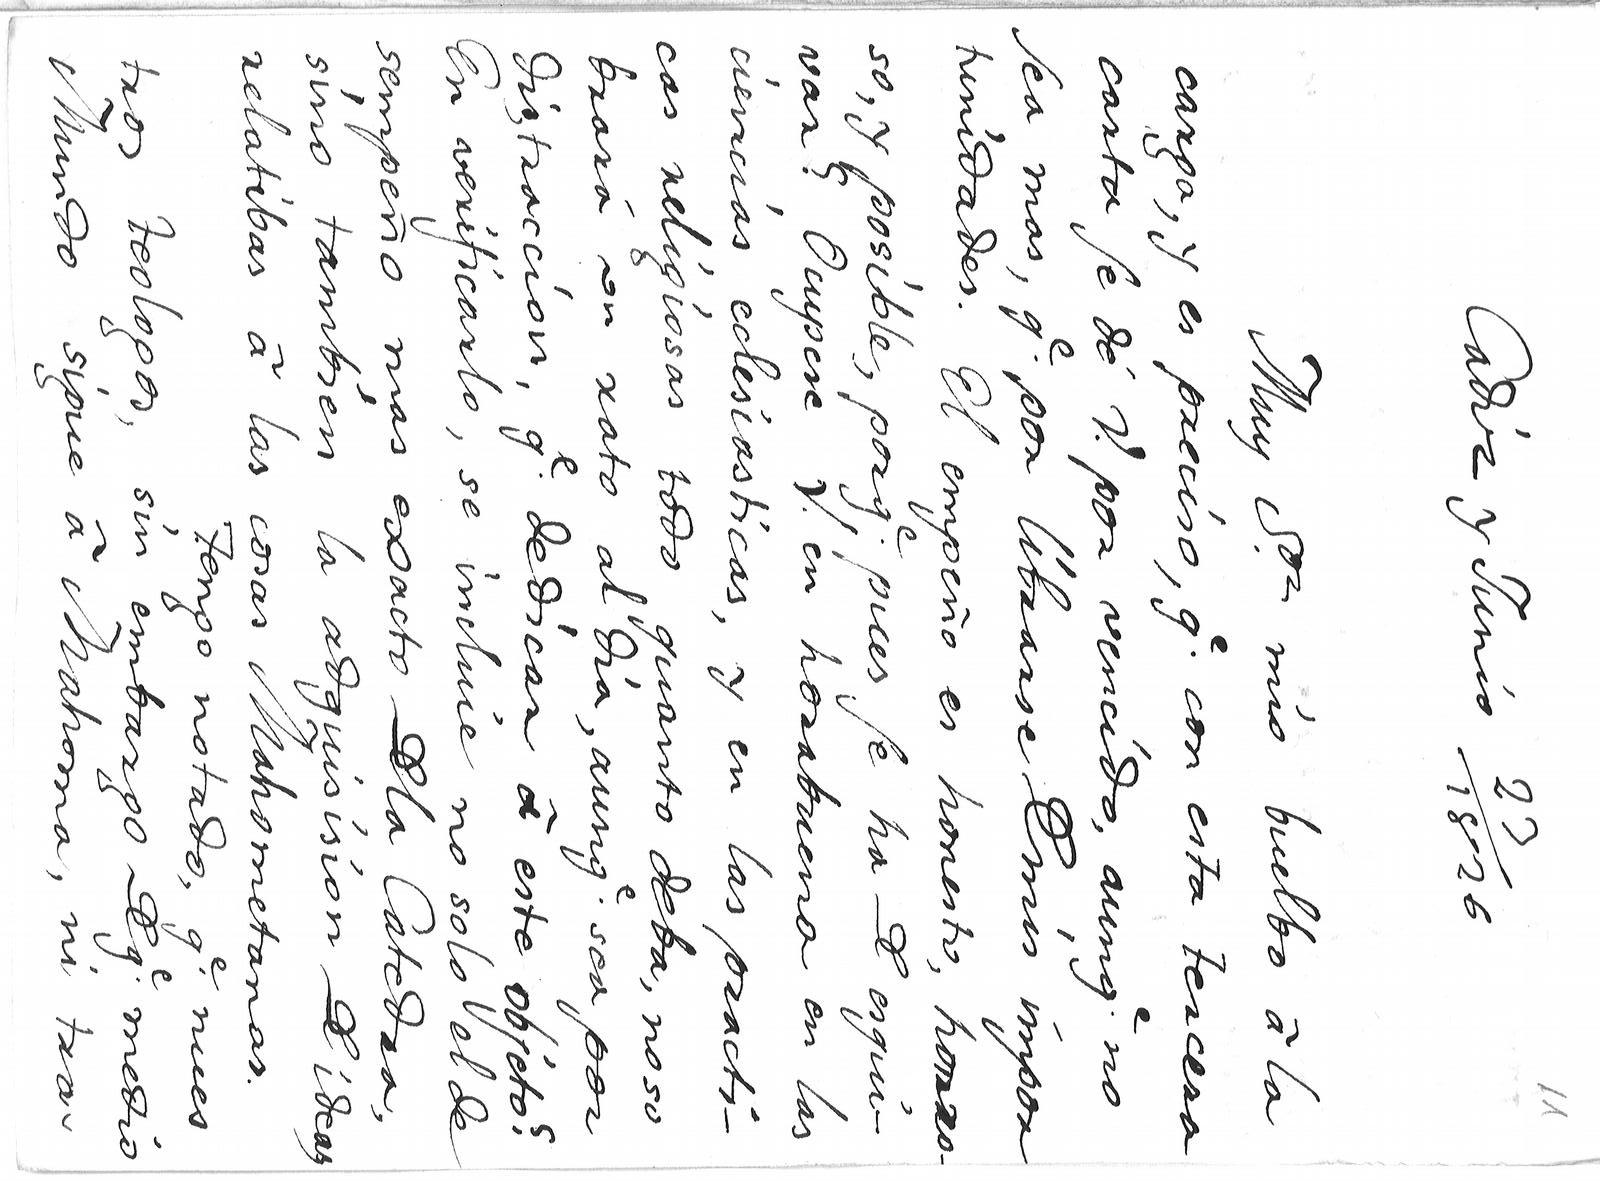 11
Cadiz y Junio 27/1826
Muy Sor. mio buelbo â la
carga, y es preciso, qe. con esta tercera
carta se dé V. por vencido, aunqe. no
sea mas, qe. por libxarse D mis impor
tunidades. El empeño es honesto, honro-
so, y posible, porqe. pues se ha D esqui-
var? Ocupese V. en horabuena en las
ciencias eclesiasticas, y en las practi-
cas religiosas todo quanto deba, noso
brará un rato al dia, aunqe. sea por
distraccion, qe. dedicar â este objeto?
En verificarlo, se incluie no solo el de
sempeño mas exacto D la Catedra,
sino tambien la adquisision D ideas
relatibas â las cosas Mahometanas.
Tengo notado, qe. nues
tros teologos, sin embargo D qe. medio
Mundo sigue â Mahoma, ni tra